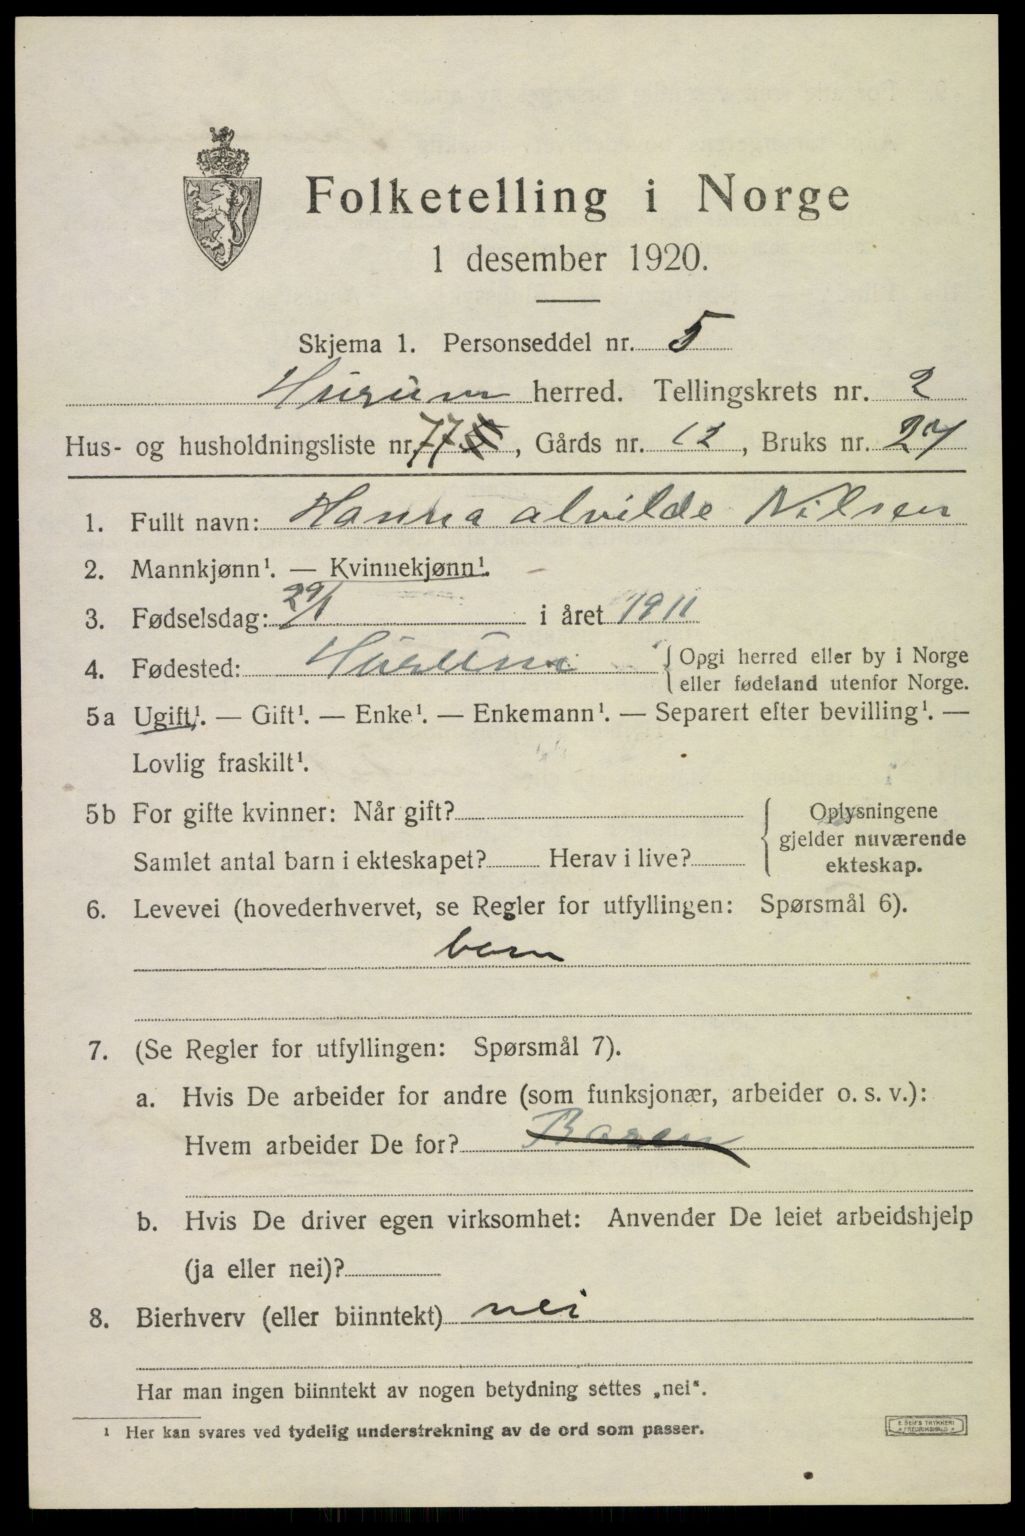 Folketelling i Norge
1 desember 1920.
Skjema 1. Personseddel nr. 5
Hurum herred. Tellingskrets nr. 2
Hus- og husholdningsliste nr. 77, Gårds nr. 12, Bruks nr. 27
1. Fullt navn: Hanna alvilde Nilsen
2. Mannkjønn¹. — Kvinnekjønn¹.
3. Fødselsdag: 29/1 i året 1911
4. Fødested: Hurum { Opgi herred eller by i Norge
eller fødeland utenfor Norge.
5a Ugift¹. — Gift¹. — Enke¹. — Enkemann¹. — Separert efter bevilling¹. —
Lovlig fraskilt¹.
5b For gifte kvinner: Når gift?
Samlet antal barn i ekteskapet? Herav i live?
{ Oplysningene
gjelder nuværende
ekteskap.
6. Levevei (hovederhvervet, se Regler for utfyllingen: Spørsmål 6).
barn
7. (Se Regler for utfyllingen: Spørsmål 7).
a. Hvis De arbeider for andre (som funksjonær, arbeider o. s. v.):
Hvem arbeider De for?
b. Hvis De driver egen virksomhet: Anvender De leiet arbeidshjelp
(ja eller nei)?
8. Bierhverv (eller biinntekt) nei
Har man ingen biinntekt av nogen betydning settes „nei“.
¹ Her kan svares ved tydelig understrekning av de ord som passer.
E. SEM'S TRYKKERI
FREDRIKSHALD